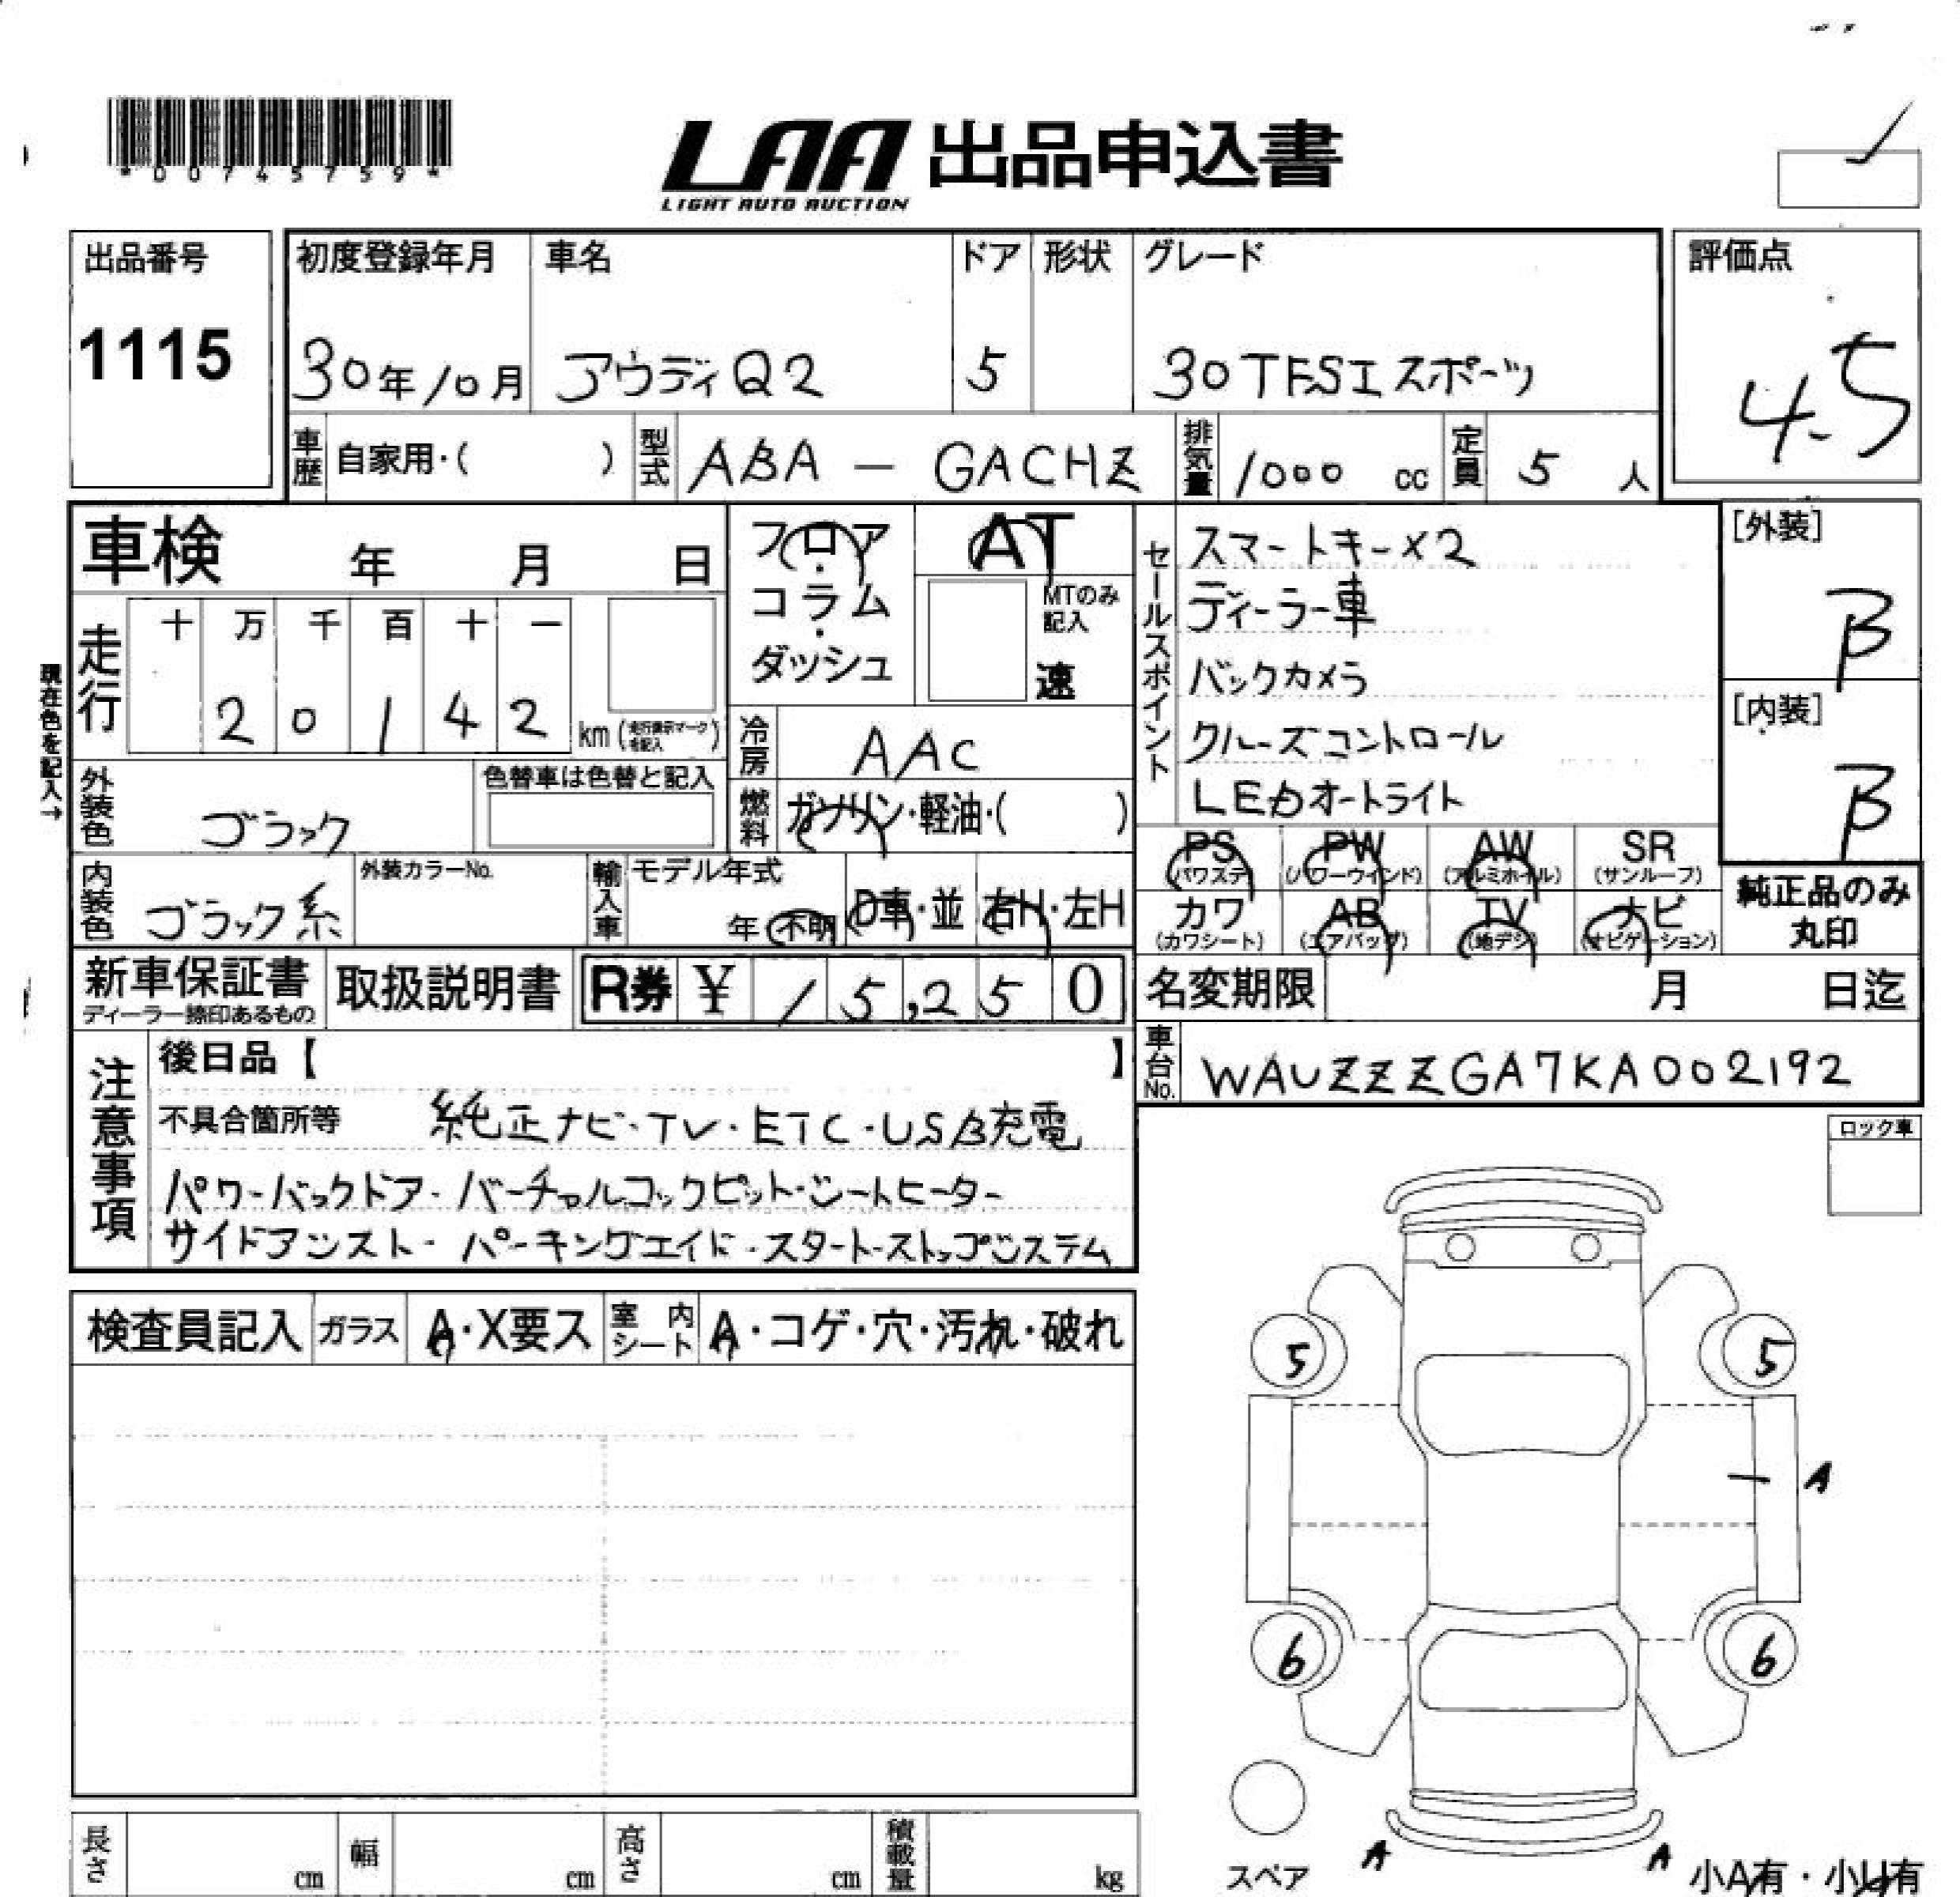 *D0745759*
LAA 出品申込書
LIGHT AUTO AUCTION
出品番号 1115
初度登録年月 30年10月
車名 アウディQ2
ドア 5
形状
グレード 30TFSIスポーツ
評価点 4.5
車歴 自家用・( )
型式 ABA - GACHZ
排気量 1000 cc
定員 5 人
車検 年 月 日
フロア・コラム・ダッシュ
AT
MTのみ記入
速
セールスポイント
スマートキー×2
ディーラー車
バックカメラ
クルーズコントロール
LEDオートライト
[外装] B
[内装] B
現在色を記入→
走行
十 万 千 百 十 一
2 0 1 4 2 km
冷房 AAC
燃料 ガソリン・軽油・( )
外装色 ブラック
色替車は色替と記入
内装色 ブラック系
外装カラーNo.
輸入車 モデル年式
年・不明 D車・並 右H・左H
PS (パワステ)
PW (パワーウインド)
AW (アルミホイル)
SR (サンルーフ)
カワ (カワシート)
AB (エアバッグ)
TV (地デジ)
ナビ (ナビゲーション)
純正品のみ丸印
新車保証書
ディーラー捺印あるもの
取扱説明書
R券 ¥ 15,250
名変期限 月 日迄
車台No. WAUZZZGA7KA002192
注意事項
後日品【 】
不具合箇所等 純正ナビ・TV・ETC・USB充電
パワーバックドア・バーチャルコックピット・シートヒーター
サイドアシスト・パーキングエイド・スタートストップシステム
ロック車
検査員記入
ガラス A・X要ス
室内シート A・コゲ・穴・汚れ・破れ
5 5
A
6 6
A A
スペア
小A有・小U有
長さ cm
幅 cm
高さ cm
積載量 kg